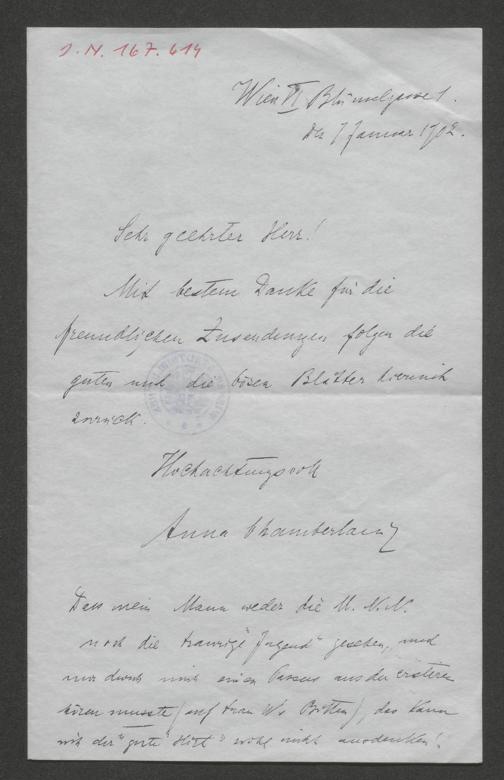 J. N. 167.614
Wien VI Blümelgasse 1.
den 7 Januar 1902.
Sehr geehrter Herr!
Mit bestem Danke für die
freundlichen Zusendungen folgen die
guten und die bösen Blätter hiermit
zurück.
Hochachtungsvoll
Anna Chamberlain
Dass mein Mann weder die M. N. N.
noch die traurige "Jugend" gesehen, und
nur durch mich einen Passus aus der ersteren
hören musste (auf Frau W's Bitten), das kann
sich der "gute Hirt" wohl nicht ausdenken!